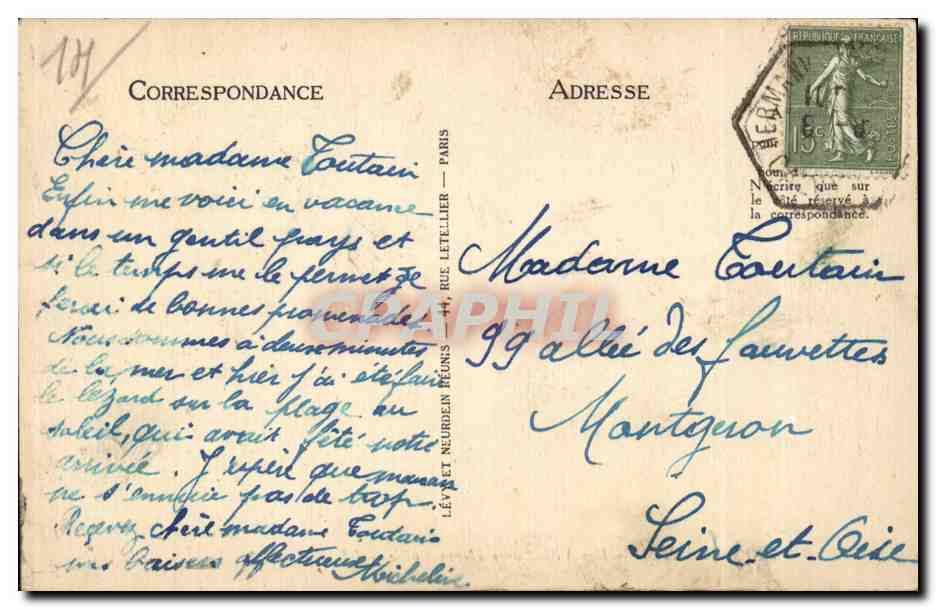 14
CORRESPONDANCE
Chère madame Toutain
Enfin me voici en vacance
dans un gentil pays et
si le temps me le permet je
ferai de bonnes promenades.
Nous sommes à deux minutes
de la mer et hier j'ai été faire
le lézard sur la plage au
soleil, qui avait fêté notre
arrivée. J'espère que maman
ne s'ennuie pas de trop.
Recevez chère madame Toutain
mes baisers affectueux
Micheline
LÉVY ET NEURDEIN RÉUNIS 44, RUE LETELLIER — PARIS
ADRESSE
RÉPUBLIQUE FRANÇAISE
15c
POSTES
N'écrire que sur
le côté réservé à
la correspondance.
Madame Toutain
99 allée des fauvettes
Montgeron
Seine-et-Oise
CPAPHIL